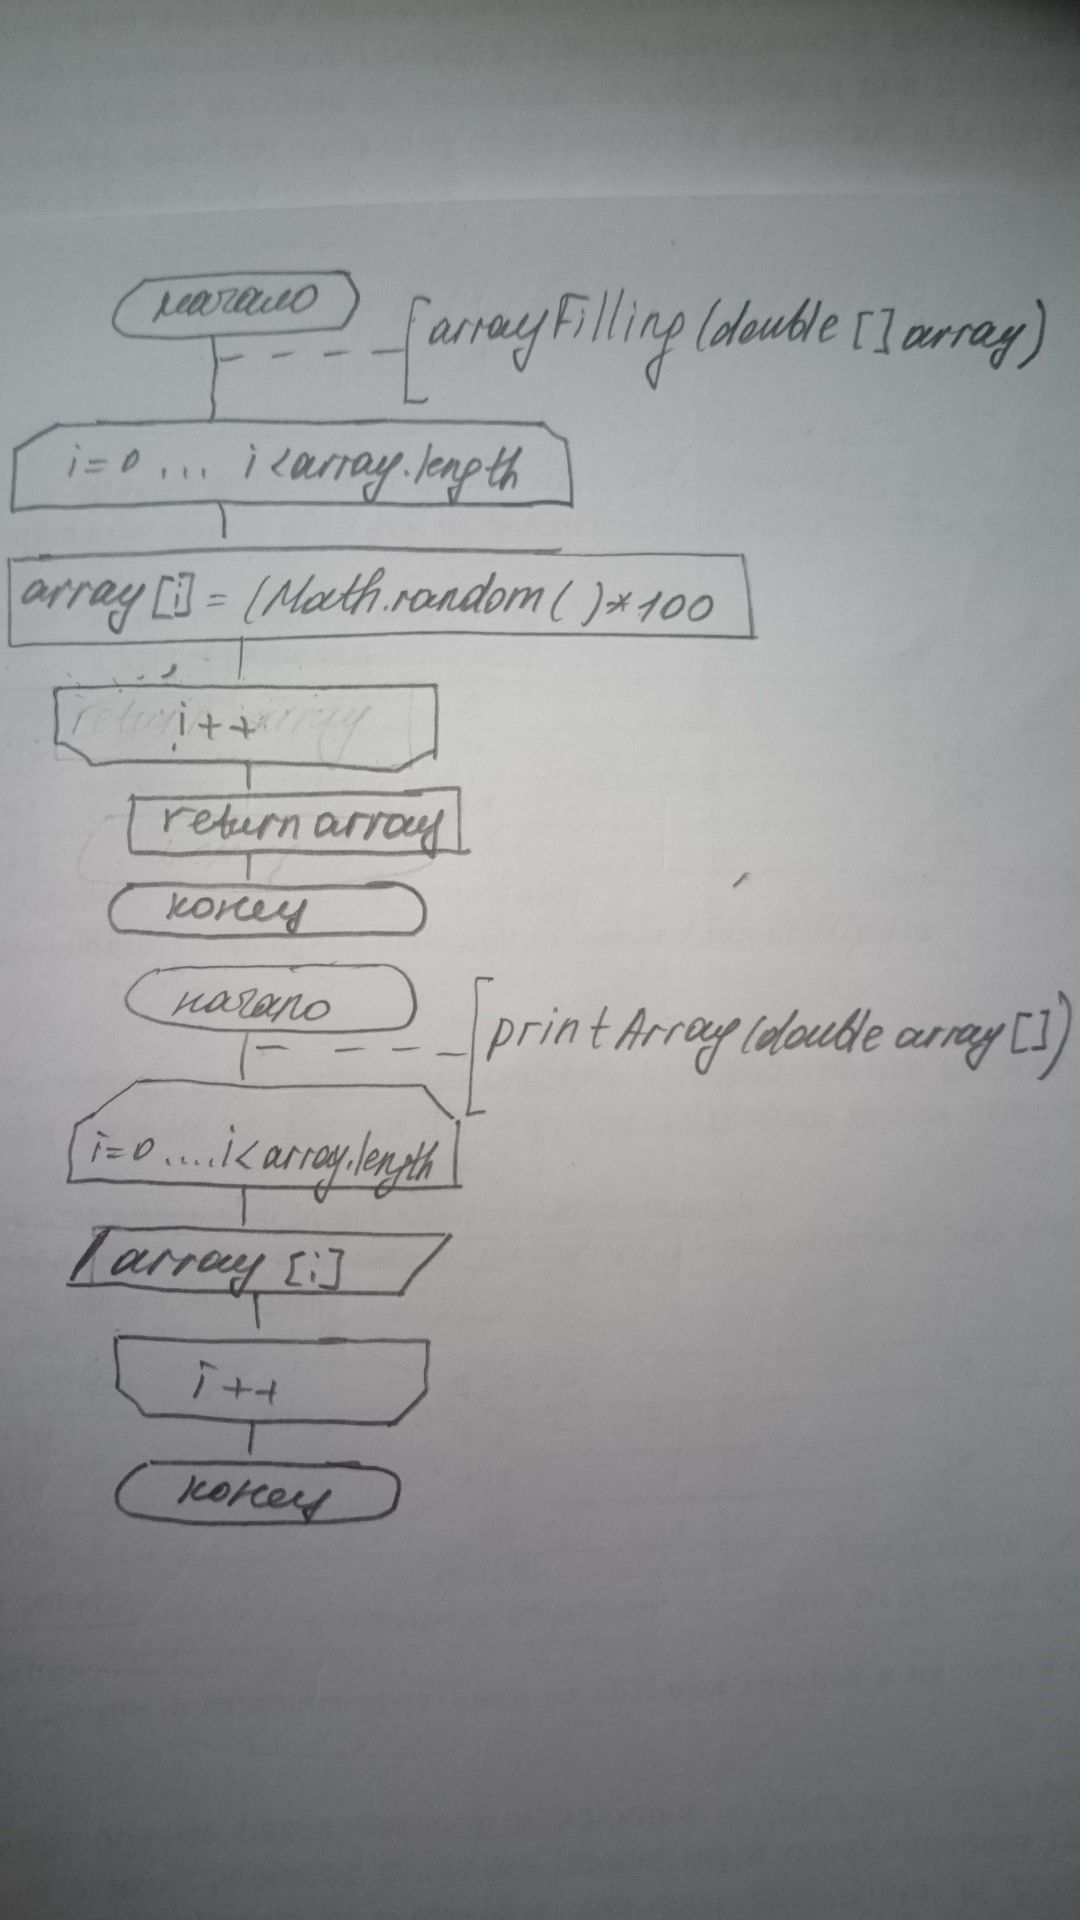 начало
arrayFilling(double[] array)
i=0 ... i<array.length
array[i] = (Math.random()*100
i++
return array
конец
начало
printArray(double array[])
i=0 .... i<array.length
array [i]
i++
конец